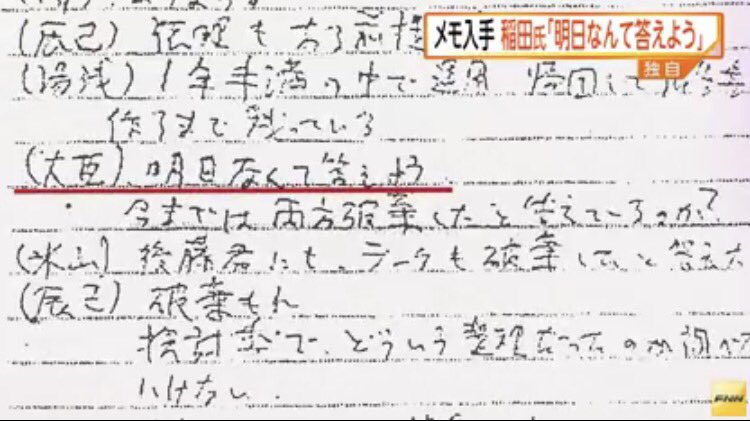 メモ入手 稲田氏「明日なんて答えよう」
独自
(辰己) 伝理も ある前提
(湯浅) 1年未満の中で運用 帰国して
作るまで残っている
(大臣) 明日なんて答えよう
・今までは両方破棄したと答えているのか?
(氷山) 後藤君にも、データも破棄していと答えた
(辰己) 破棄もれ
検討まで、どういう整理だったのか調べ
いけない.
FNN